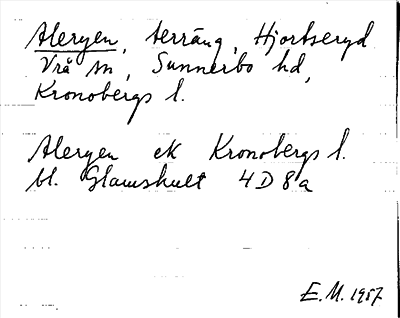 Aleryen, terräng, Hjortseryd
Vrå sn, Sunnerbo hd,
Kronobergs l.
Aleryen ek Kronobergs l.
bl. Glamshult 4D8a
E.M. 1957